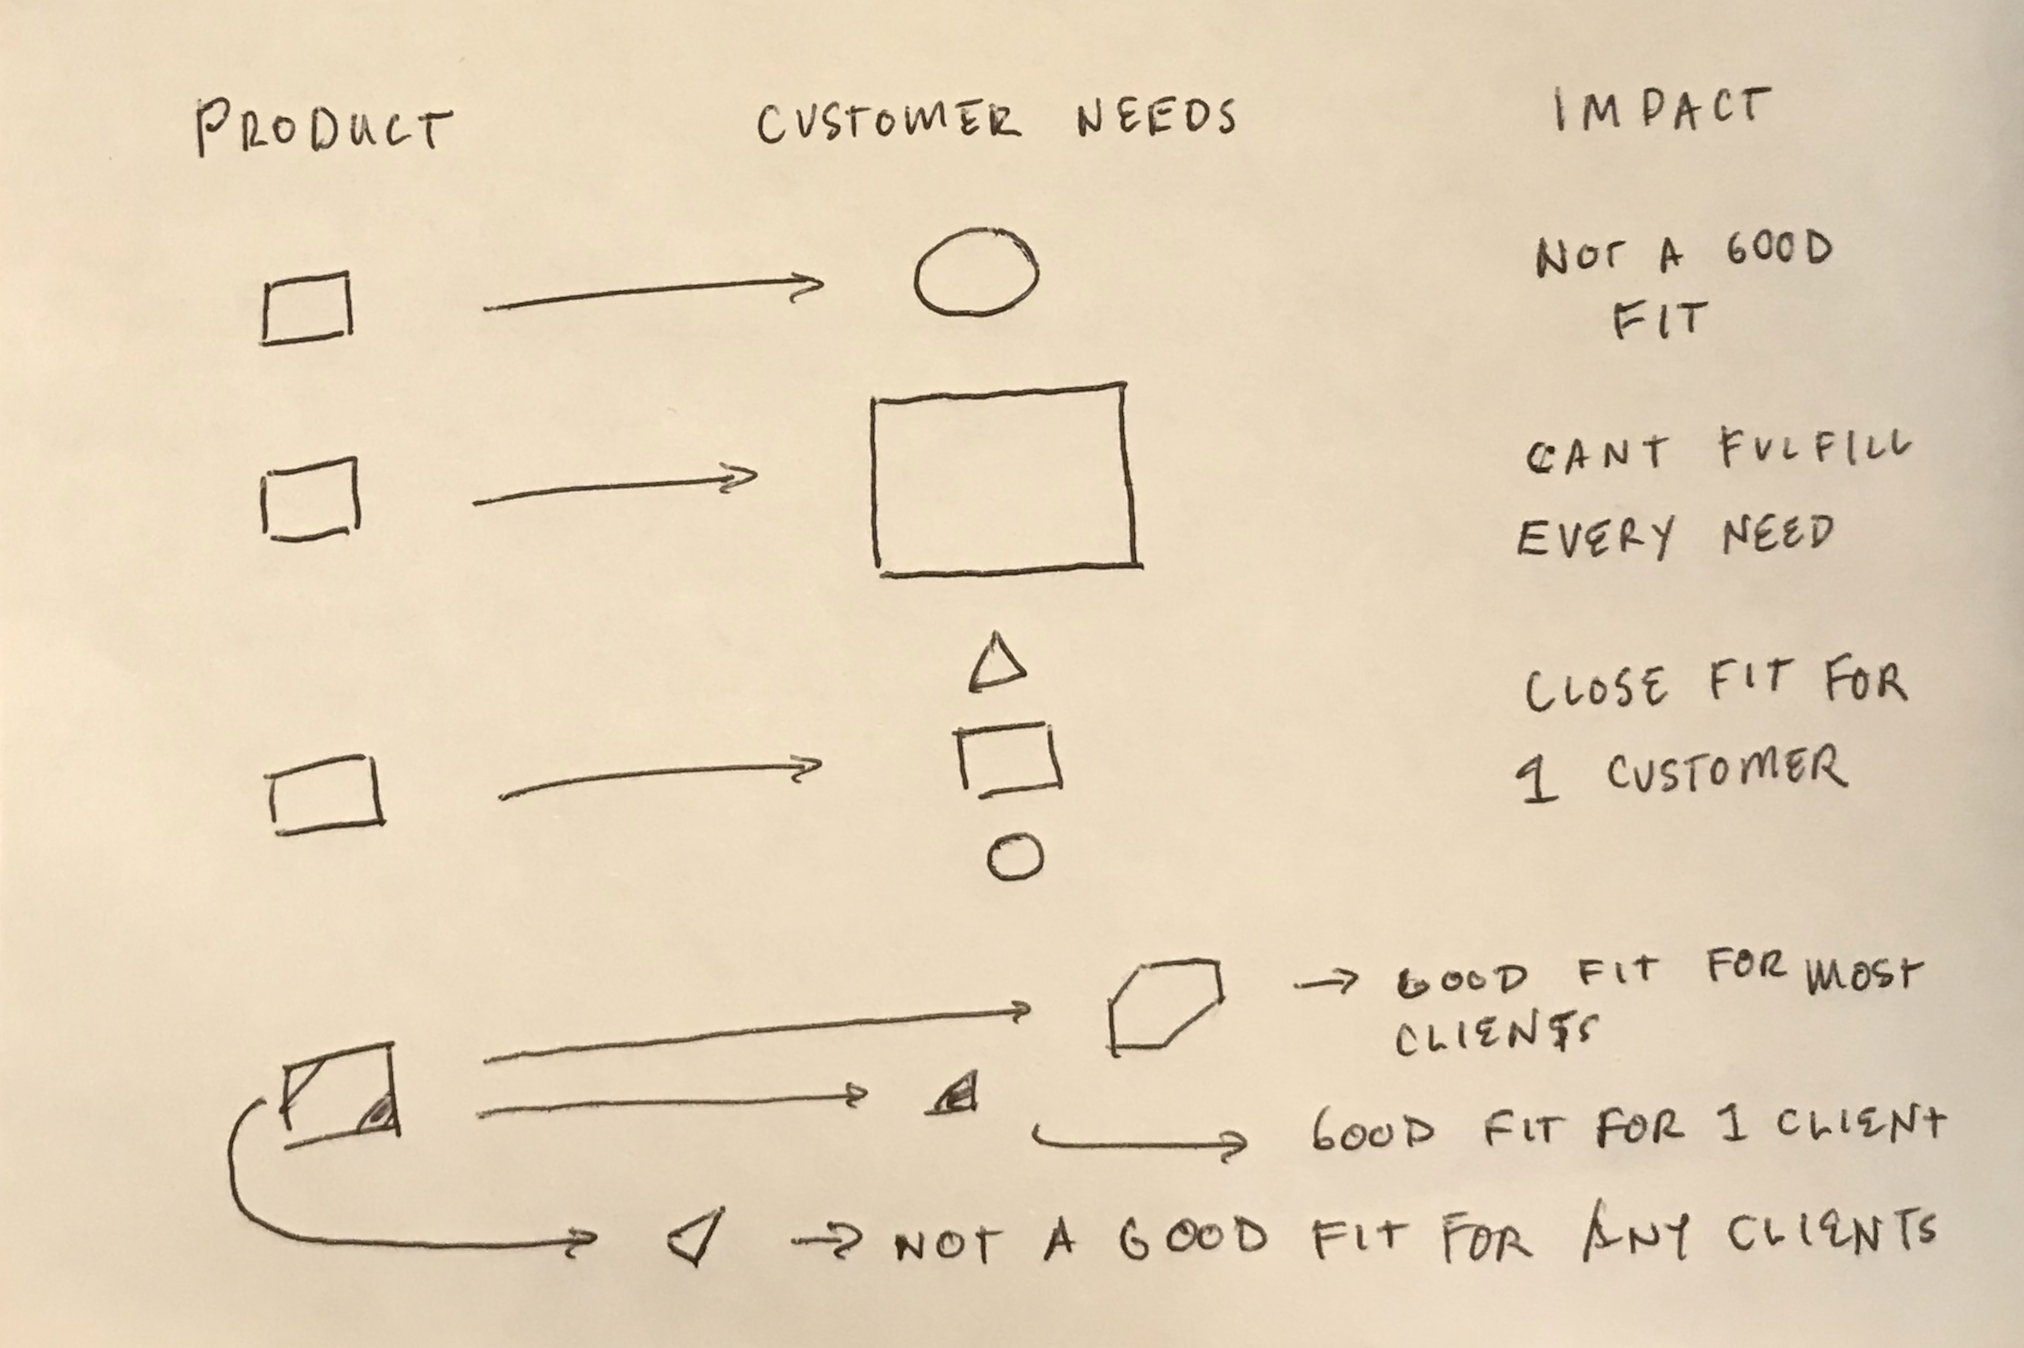 PRODUCT CUSTOMER NEEDS IMPACT
NOT A GOOD
FIT
CANT FULFILL
EVERY NEED
CLOSE FIT FOR
1 CUSTOMER
GOOD FIT FOR MOST
CLIENTS
GOOD FIT FOR 1 CLIENT
NOT A GOOD FIT FOR ANY CLIENTS